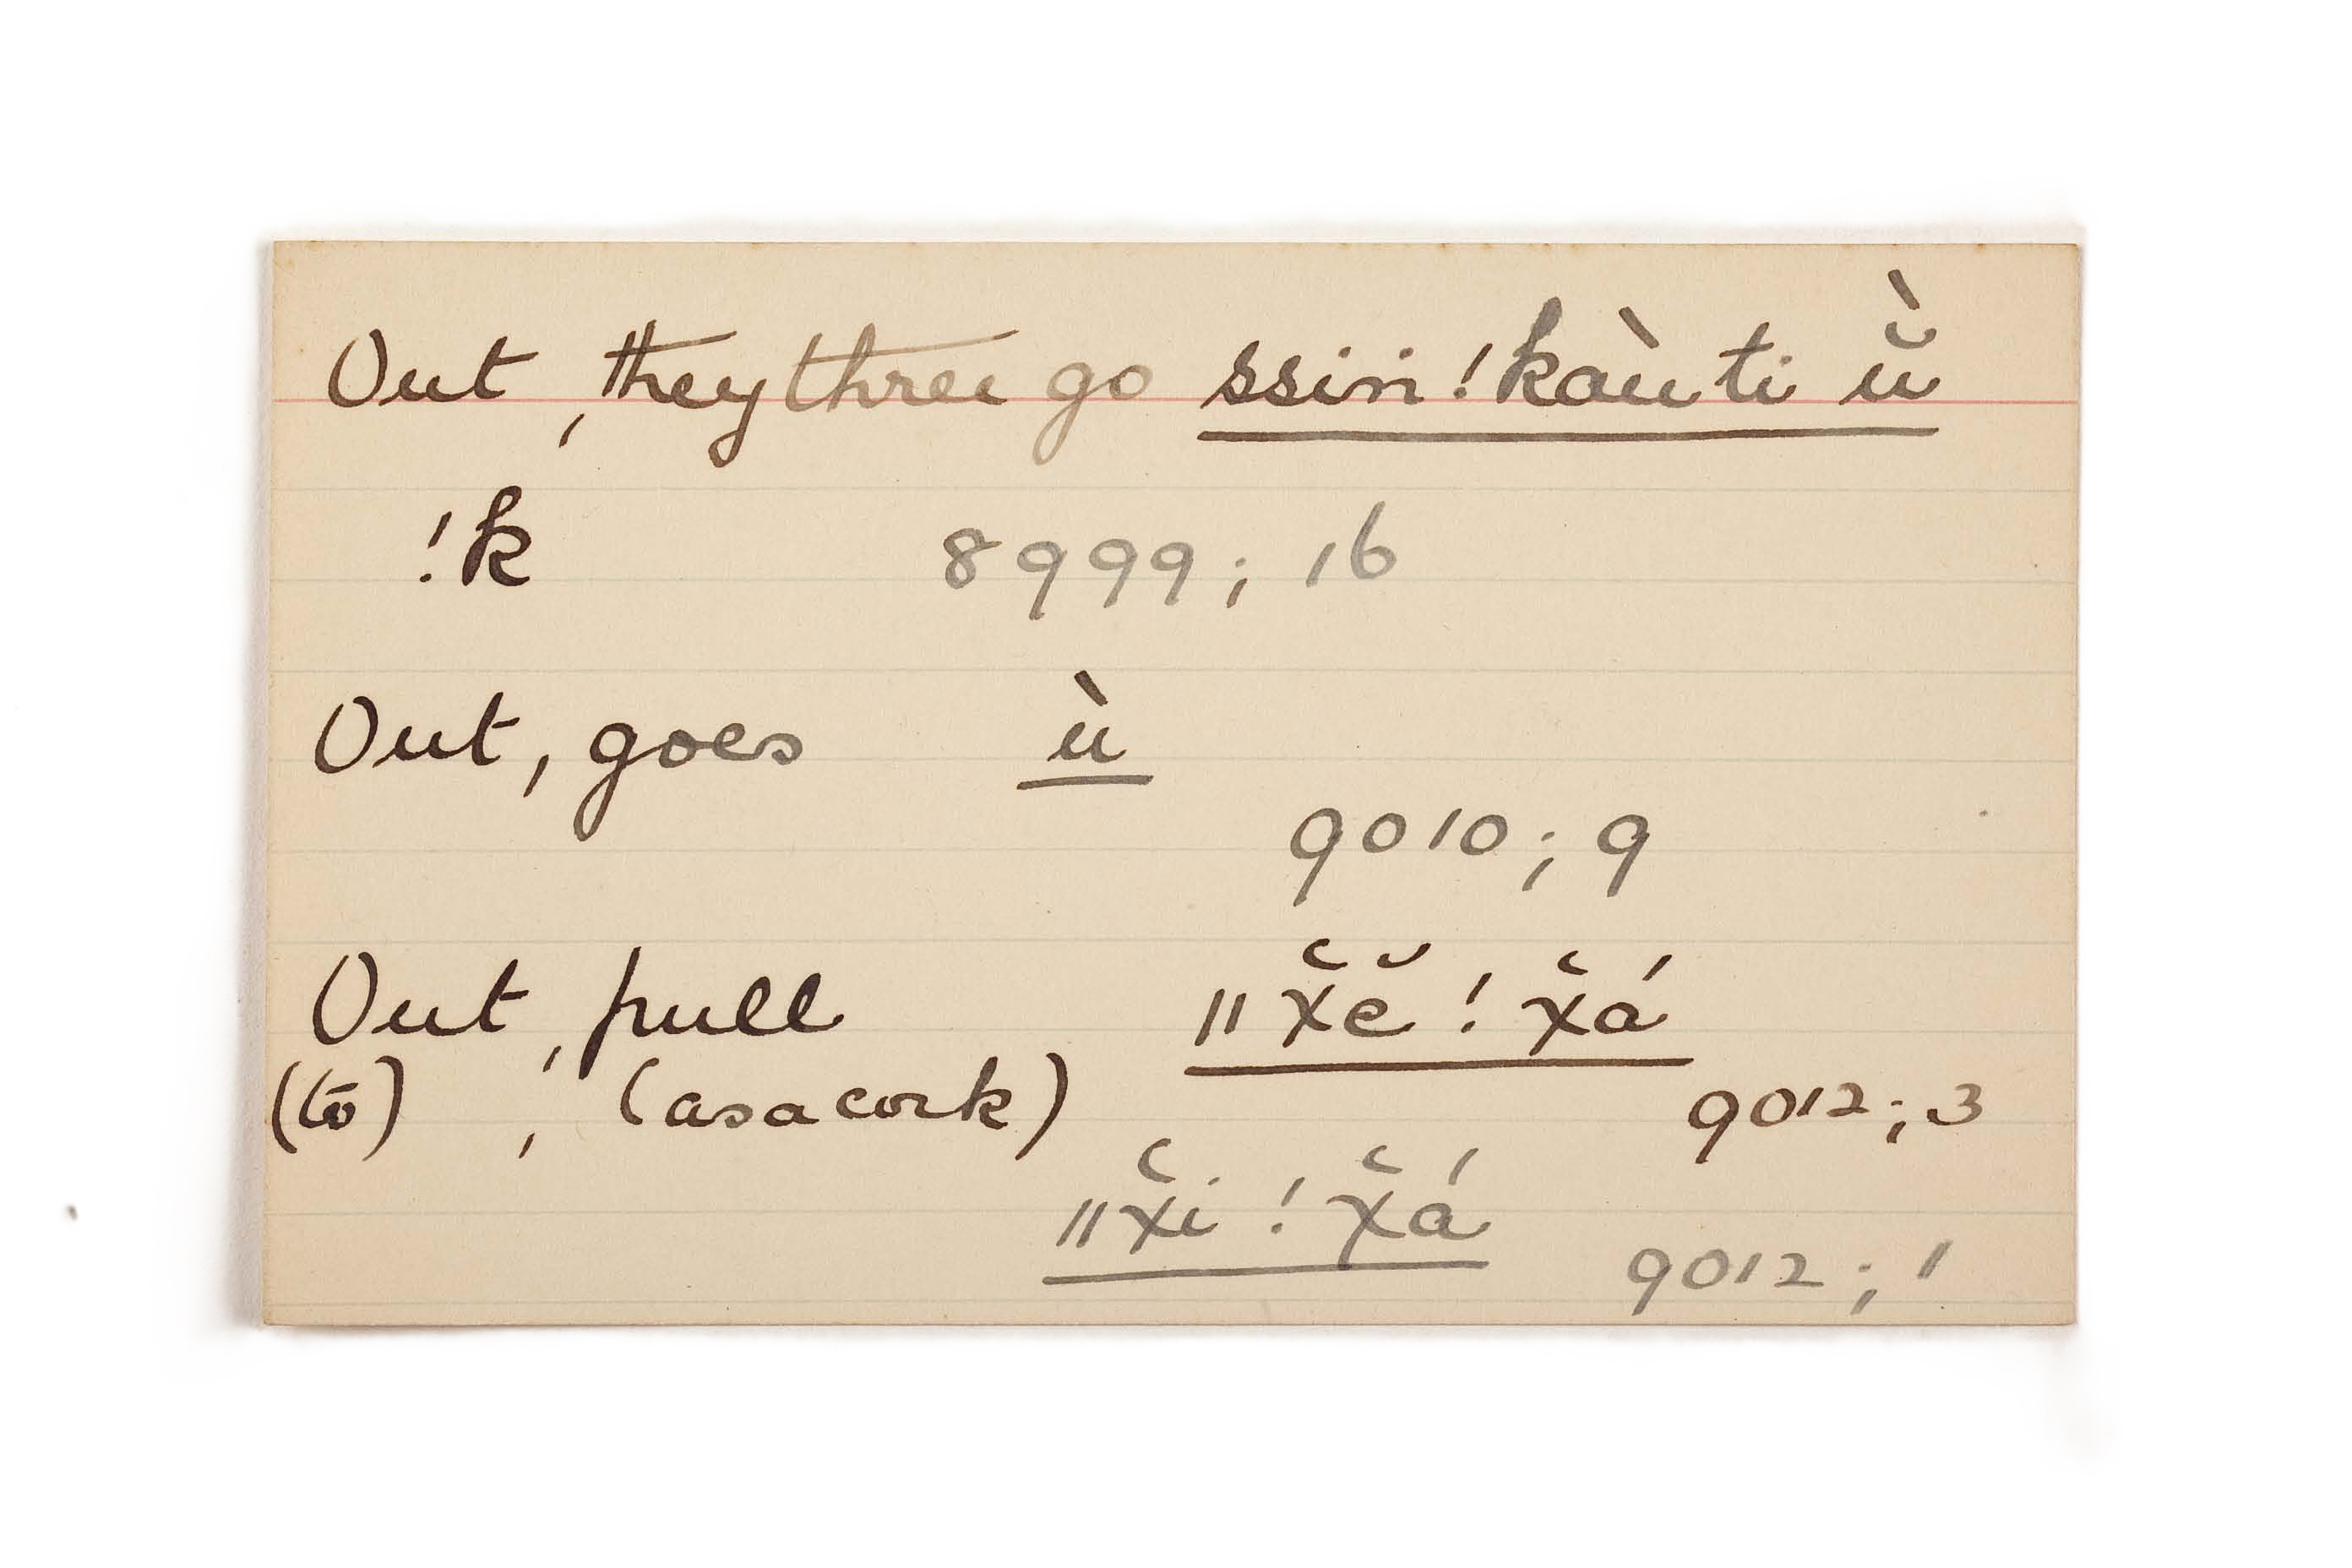 Out, they three go ssin!kàu ti ŭ̀
!k 8999; 16
Out, goes ù
9010; 9
Out, pull ǁχ̆ĕ!χ̆á
(to) , (as a cork) 9012; 3
ǁχ̆i!χ̆á 9012; 1